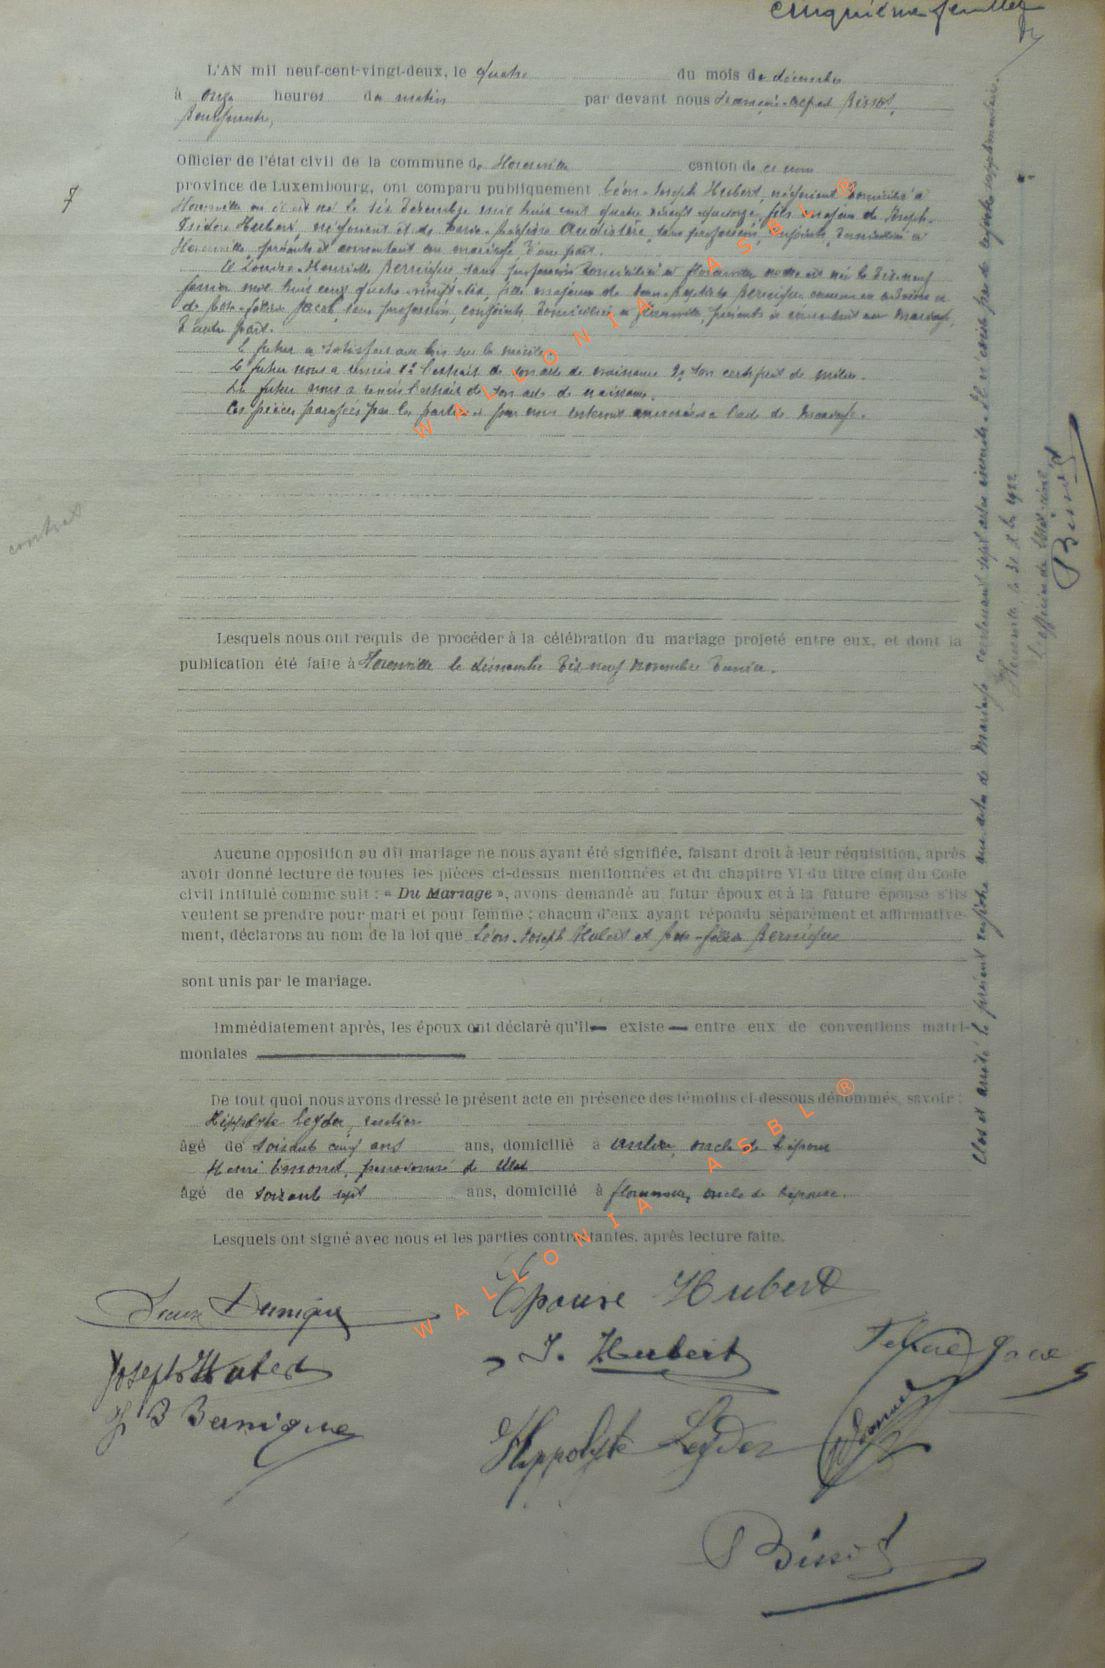 cinquième feuillet
L'AN mil neuf-cent-vingt-deux, le quatre du mois de décembre
à onze heures du matin par devant nous François Bissot,
Bourgmestre,
Officier de l'état civil de la commune de Florenville canton de ce nom
7
province de Luxembourg, ont comparu publiquement Léon-Joseph Hubert, négociant domicilié à
Florenville où il est né le dix décembre mil huit cent quatre vingt quatorze, fils majeur de Joseph-
Isidore Hubert, négociant et de Marie sans profession, conjoints, domiciliés à
Florenville, présents et consentant au mariage d'une part.
Et Henriette Bernique sans profession domiciliée à Florenville où elle est née le dix-neuf
mil huit cent quatre-vingt-dix, fille majeure de Jean-Baptiste Bernique et
de Jacob, sans profession, conjoints domiciliés à Florenville, présents et consentant au mariage,
d'autre part.
Le futur a satisfait aux lois sur la milice.
Le futur nous a remis 1° l'extrait de son acte de naissance 2° son certificat de milice.
La future nous a remis l'extrait de son acte de naissance.
Ces pièces paraphées par les parties et par nous resteront annexées à l'acte de mariage.
contrat
Lesquels nous ont requis de procéder à la célébration du mariage projeté entre eux, et dont la
publication été faite à Florenville le dimanche dix neuf novembre dernier.
Aucune opposition au dit mariage ne nous ayant été signifiée, faisant droit à leur réquisition, après
avoir donné lecture de toutes les pièces ci-dessus mentionnées et du chapitre VI du titre cinq du Code
civil intitulé comme suit : « Du Mariage », avons demandé au futur époux et à la future épouse s'ils
veulent se prendre pour mari et pour femme ; chacun d'eux ayant répondu séparément et affirmative-
ment, déclarons au nom de la loi que Léon-Joseph Hubert et Bernique
sont unis par le mariage.
Immédiatement après, les époux ont déclaré qu'il — existe — entre eux de conventions matri-
moniales
De tout quoi nous avons dressé le présent acte en présence des témoins ci-dessous dénommés, savoir :
Hippolyte Leyder, rentier
âgé de soixante cinq ans ans, domicilié à oncle de l'époux
Henri pensionné de l'Etat
âgé de soixante sept ans, domicilié à Florenville, oncle de l'épouse.
Lesquels ont signé avec nous et les parties contractantes, après lecture faite.
Bernique
Epouse Hubert
Joseph Hubert
J. Hubert
J B Bernique
Hippolyte Leyder
Bissot
Clos et arrêté le présent registre aux actes de mariage contenant sept actes inscrits. Il n'existe pas de registre supplémentaire.
Florenville le 31 Xbre 1922
L'officier de l'état civil
Bissot
WALLONIA ASBL ®
WALLONIA ASBL ®